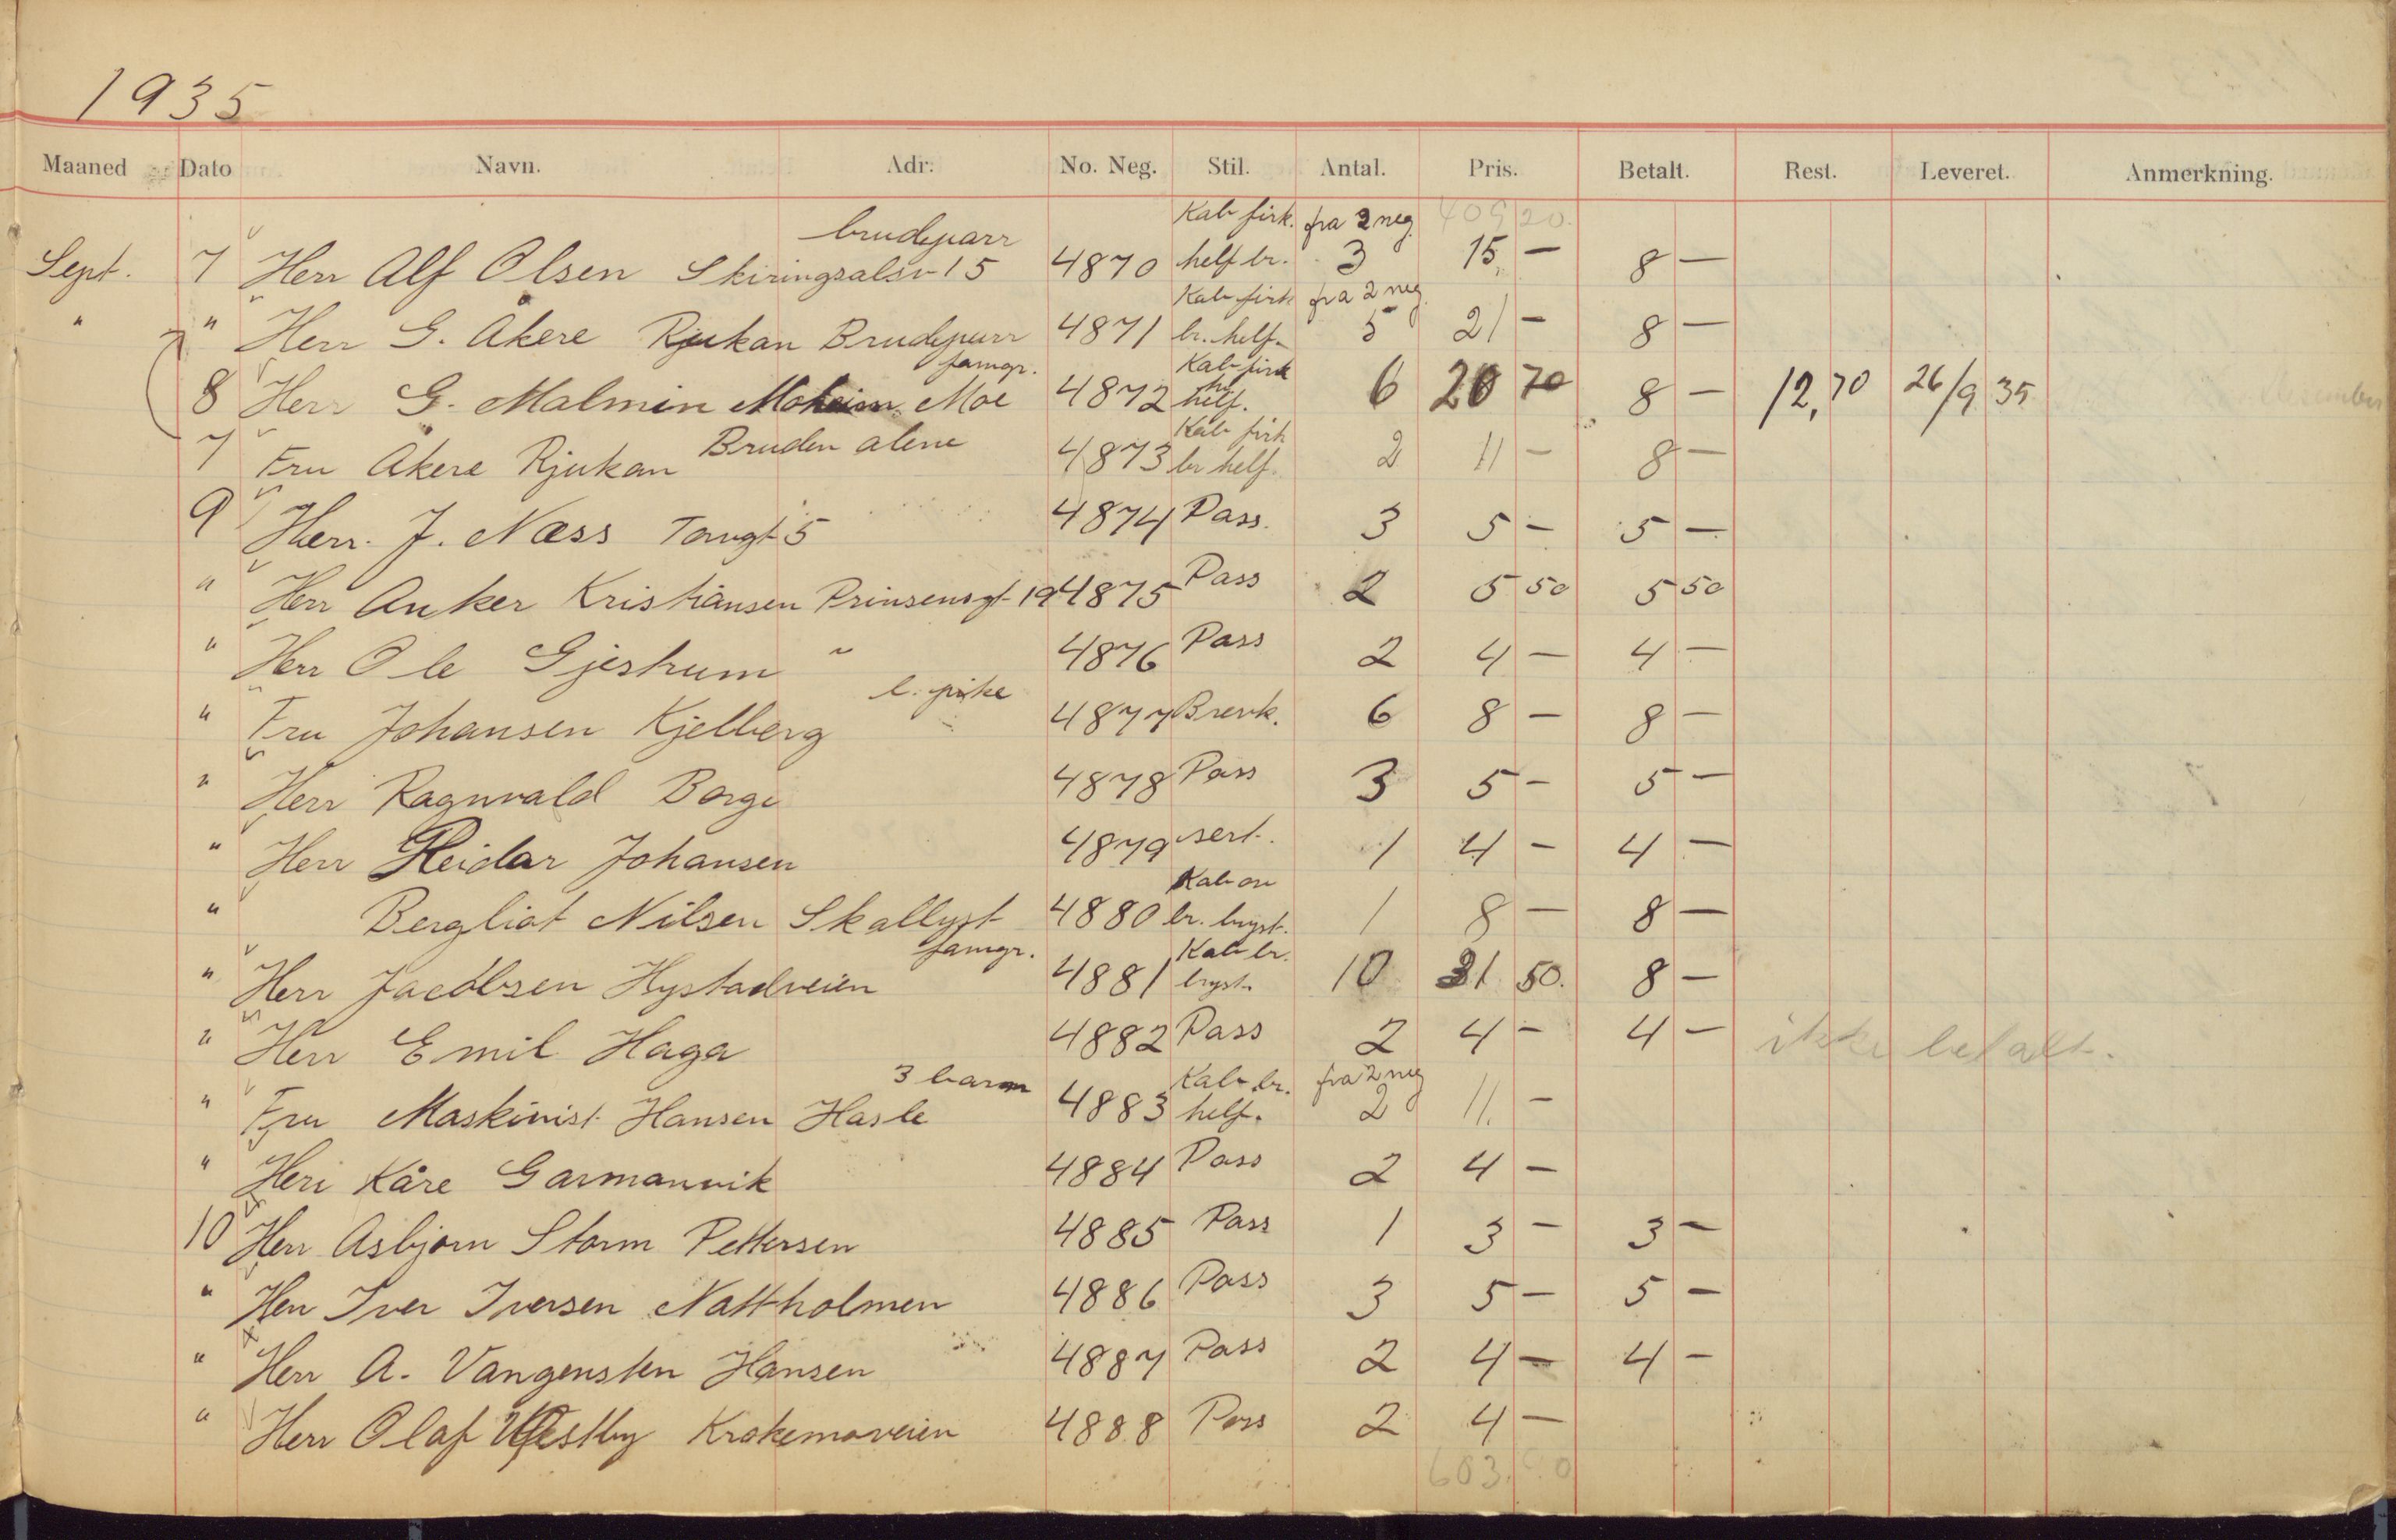 1935
Maaned Dato Navn. Adr. No. Neg. Stil. Antal. Pris. Betalt. Rest. Leveret. Anmerkning.
brudeparr Kab firk. fra 2 neg. 409 20.
Sept. 7 Herr Alf Olsen Skiringsalsv 15 4870 helf br. 3 15, — 8 —
Kab firk fra 2 neg.
" " Herr G. Åkere Rjukan Brudeparr 4871 br. helf. 5 21 — 8 —
famgr. Kab firk
8 Herr G. Malmin Moe 4872 helf. 6 20 70 8 — 12,70 26/9 35
Bruden alene Kab firk
7 Fru Åkere Rjukan 4873 br helf. 2 11 — 8 —
9 Herr. J. Næss Torvgt 5 4874 Pass. 3 5 — 5 —
" Herr Anker Kristiansen Prinsensgt 19 4875 Pass 2 5 50 5 50
" Herr Ole Gjestrum " 4876 Pass 2 4 — 4 —
l. pike
" Fru Johansen Kjelberg 4877 Brevk. 6 8 — 8 —
" Herr Ragnvald Borge 4878 Pass 3 5 — 5 —
" Herr Reidar Johansen 4879 sert. 1 4 — 4 —
Kab
" Bergliot Nilsen Skallyst 4880 br. bryst. 1 8 — 8 —
famgr. Kab br.
" Herr Jacobsen Hystadveien 4881 bryst. 10 31 50. 8 —
" Herr Emil Haga 4882 Pass 2 4 — 4 — ikke betalt.
3 barn Kab br. fra 2 neg
" Fru Maskinist Hansen Hasle 4883 helf. 2 11. —
" Herr Kåre Garmannvik 4884 Pass 2 4 —
10 Herr Asbjørn Storm Pettersen 4885 Pass 1 3 — 3 —
" Herr Iver Iversen Nattholmen 4886 Pass 3 5 — 5 —
" Herr A. Vangensten Hansen 4887 Pass 2 4 — 4 —
" Herr Olaf Westby Krokemoveien 4888 Pass 2 4 —
603.